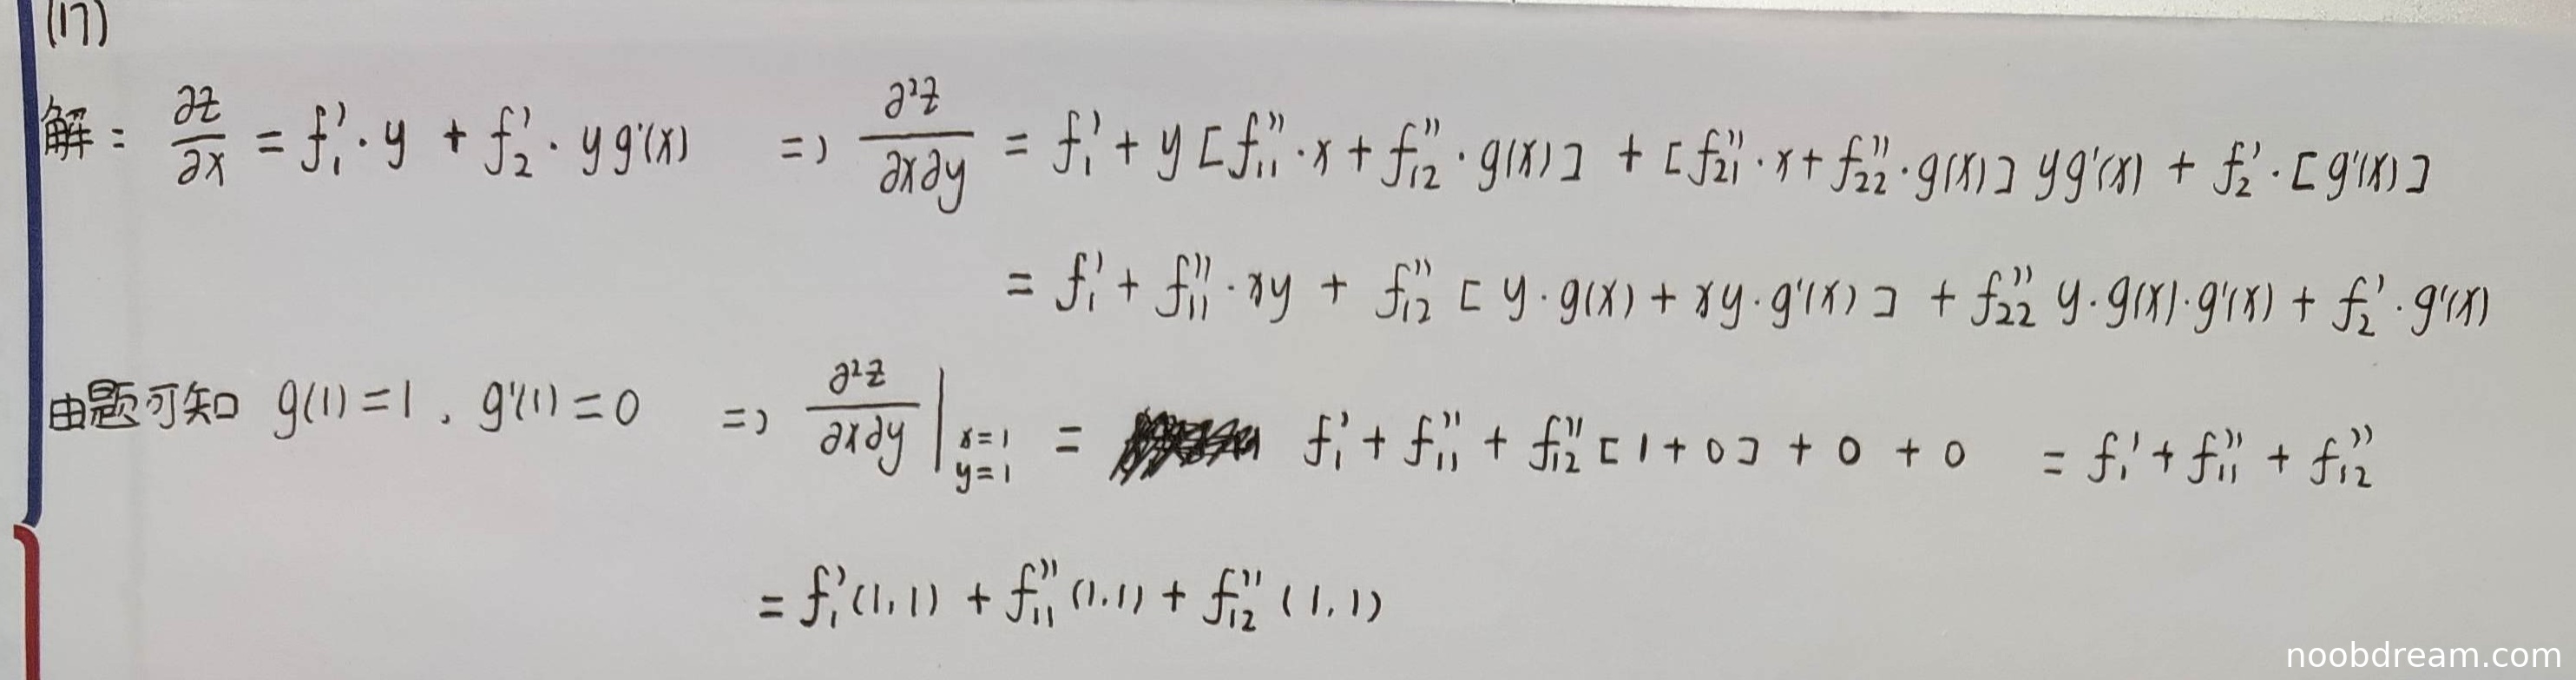 (17)
解: ∂z/∂x = f₁′·y + f₂′·yg′(x) ⇒ ∂²z/∂x∂y = f₁′ + y[f₁₁″·x + f₁₂″·g(x)] + [f₂₁″·x + f₂₂″·g(x)]yg′(x) + f₂′·[g′(x)]
= f₁′ + f₁₁″·xy + f₁₂″[y·g(x) + xy·g′(x)] + f₂₂″y·g(x)·g′(x) + f₂′·g′(x)
由题可知 g(1)=1, g′(1)=0 ⇒ ∂²z/∂x∂y |x=1 y=1 = f₁′ + f₁₁″ + f₁₂″[1+0] + 0 + 0 = f₁′ + f₁₁″ + f₁₂″
= f₁′(1,1) + f₁₁″(1,1) + f₁₂″(1,1)
noobdream.com